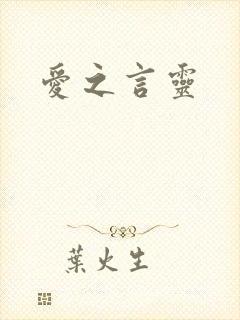 愛之言靈
葉火生